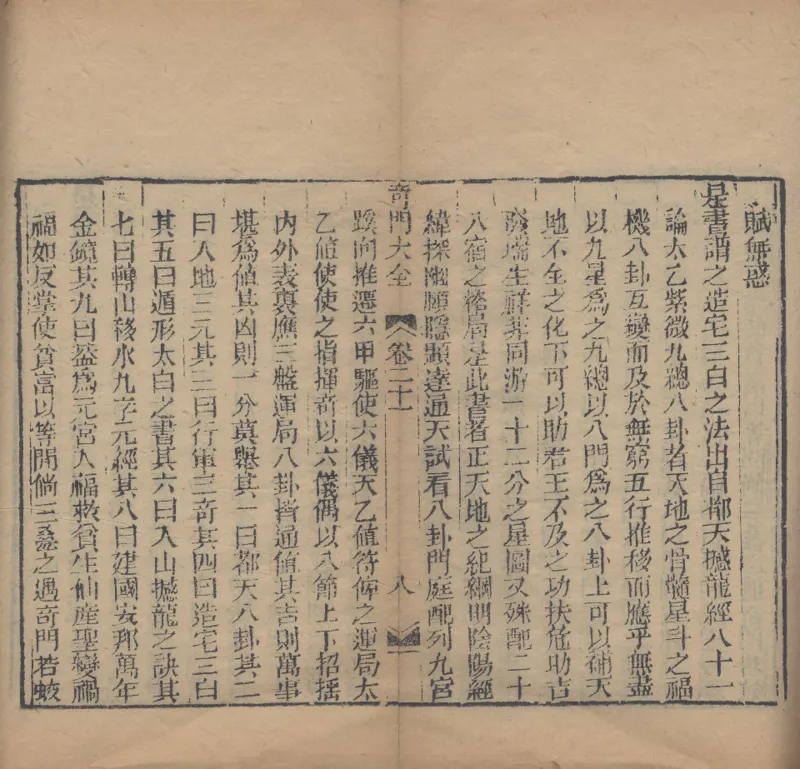 賦無惑
是書謂之造宅三白之法出自都天撼龍經八十一
論太乙紫微九總八卦者天地之骨髓星斗之福
機八卦互變而及於無窮五行推移而應乎無盡
以九星為之九總以八門為之八卦上可以補天
地不全之化下可以助君王不及之功扶危助吉
發瑞生鮮業同游一十二分之星圖又殊配二十
八宿之絡局是此書者正天地之紀綱明陰陽經
奇門大全 卷二十一 八
緯探幽願隱顯達通天試看八卦門庭配列九宮
蹊向推遷六甲驅使六儀天乙値符俾之運局太
乙値使使之指揮奇以六儀偶以八節上下招搖
內外表裏應三盤運局八卦皆通値其吉則萬事
堪為値其凶則一分莫舉其一曰都天八卦其二
曰人地三元其三曰行軍三奇其四曰造宅三白
其五曰遁形太白之書其六曰入山撼龍之訣其
七曰轉山移水九字元經其八曰建國安邦萬年
金鏡其九曰葢為元宮入福救貧生仙產聖變禍
福如反掌使貧富以等閒倘三之遇奇門若